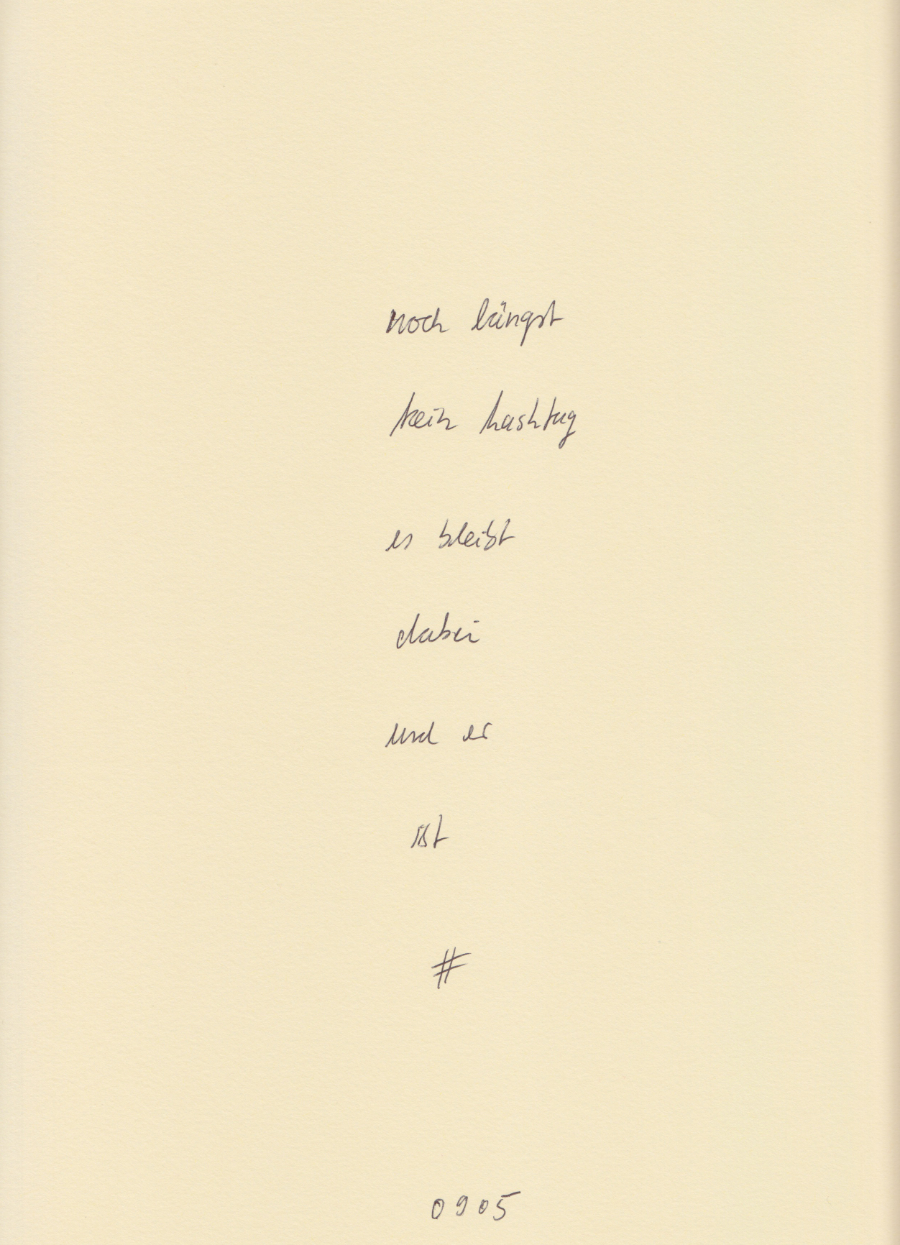 noch längst
kein hashtag
es bleibt
dabei
und er
ist
#
0905